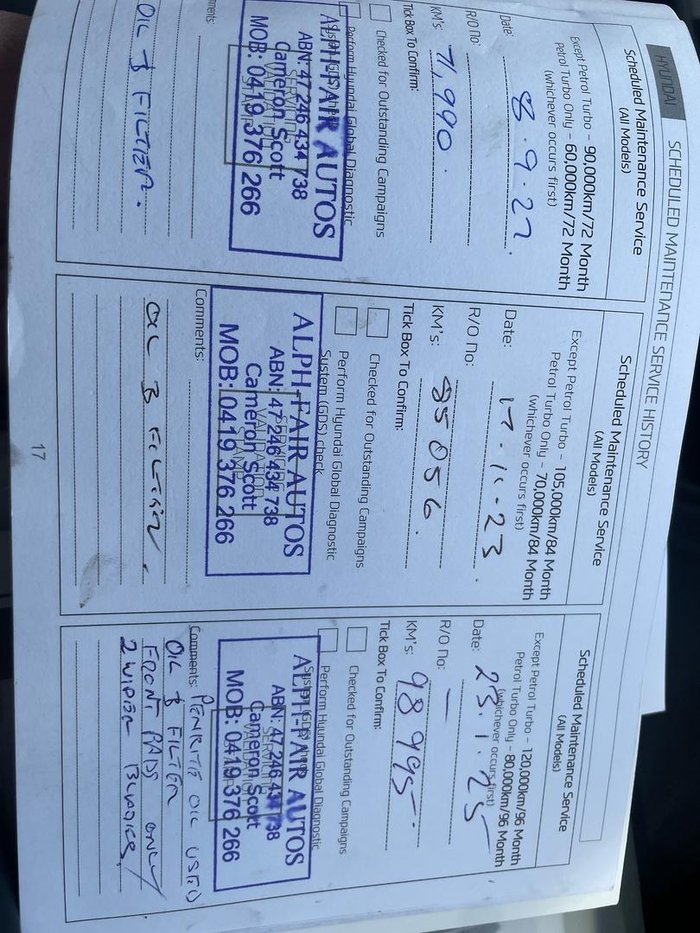 HYUNDAI
SCHEDULED MAINTENANCE SERVICE HISTORY
Scheduled Maintenance Service
(All Models)
Except Petrol Turbo – 90,000km/72 Month
Petrol Turbo Only – 60,000km/72 Month
(whichever occurs first)
Date: 8.9.22.
R/O No:
KM's: 71,990.
Tick Box To Confirm:
Checked for Outstanding Campaigns
Perform Hyundai Global Diagnostic
ALPH-FAIR AUTOS
ABN: 47 246 434 738
Cameron Scott
MOB: 0419 376 266
OIL & FILTER.
Scheduled Maintenance Service
(All Models)
Except Petrol Turbo – 105,000km/84 Month
Petrol Turbo Only – 70,000km/84 Month
(whichever occurs first)
Date: 17.11.23.
R/O No:
KM's: 85056.
Tick Box To Confirm:
Checked for Outstanding Campaigns
Perform Hyundai Global Diagnostic
System (GDS) check
ALPH-FAIR AUTOS
ABN: 47 246 434 738
Cameron Scott
MOB: 0419 376 266
Comments:
OIL & FILTER.
Scheduled Maintenance Service
(All Models)
Except Petrol Turbo – 120,000km/96 Month
Petrol Turbo Only – 80,000km/96 Month
(whichever occurs first)
Date: 23.1.25
R/O No: —
KM's: 98995.
Tick Box To Confirm:
Checked for Outstanding Campaigns
Perform Hyundai Global Diagnostic
System (GDS) check
ALPH-FAIR AUTOS
ABN: 47 246 434 738
Cameron Scott
MOB: 0419 376 266
Comments: PENRITE OIL USED
OIL & FILTER
FRONT PADS ONLY
2 WIPER BLADES.
17